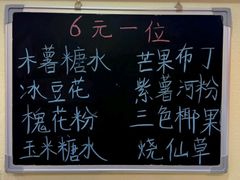 6元一位
木薯糖水
芒果布丁
冰豆花
紫薯河粉
槐花粉
三色椰果
玉米糖水
烧仙草